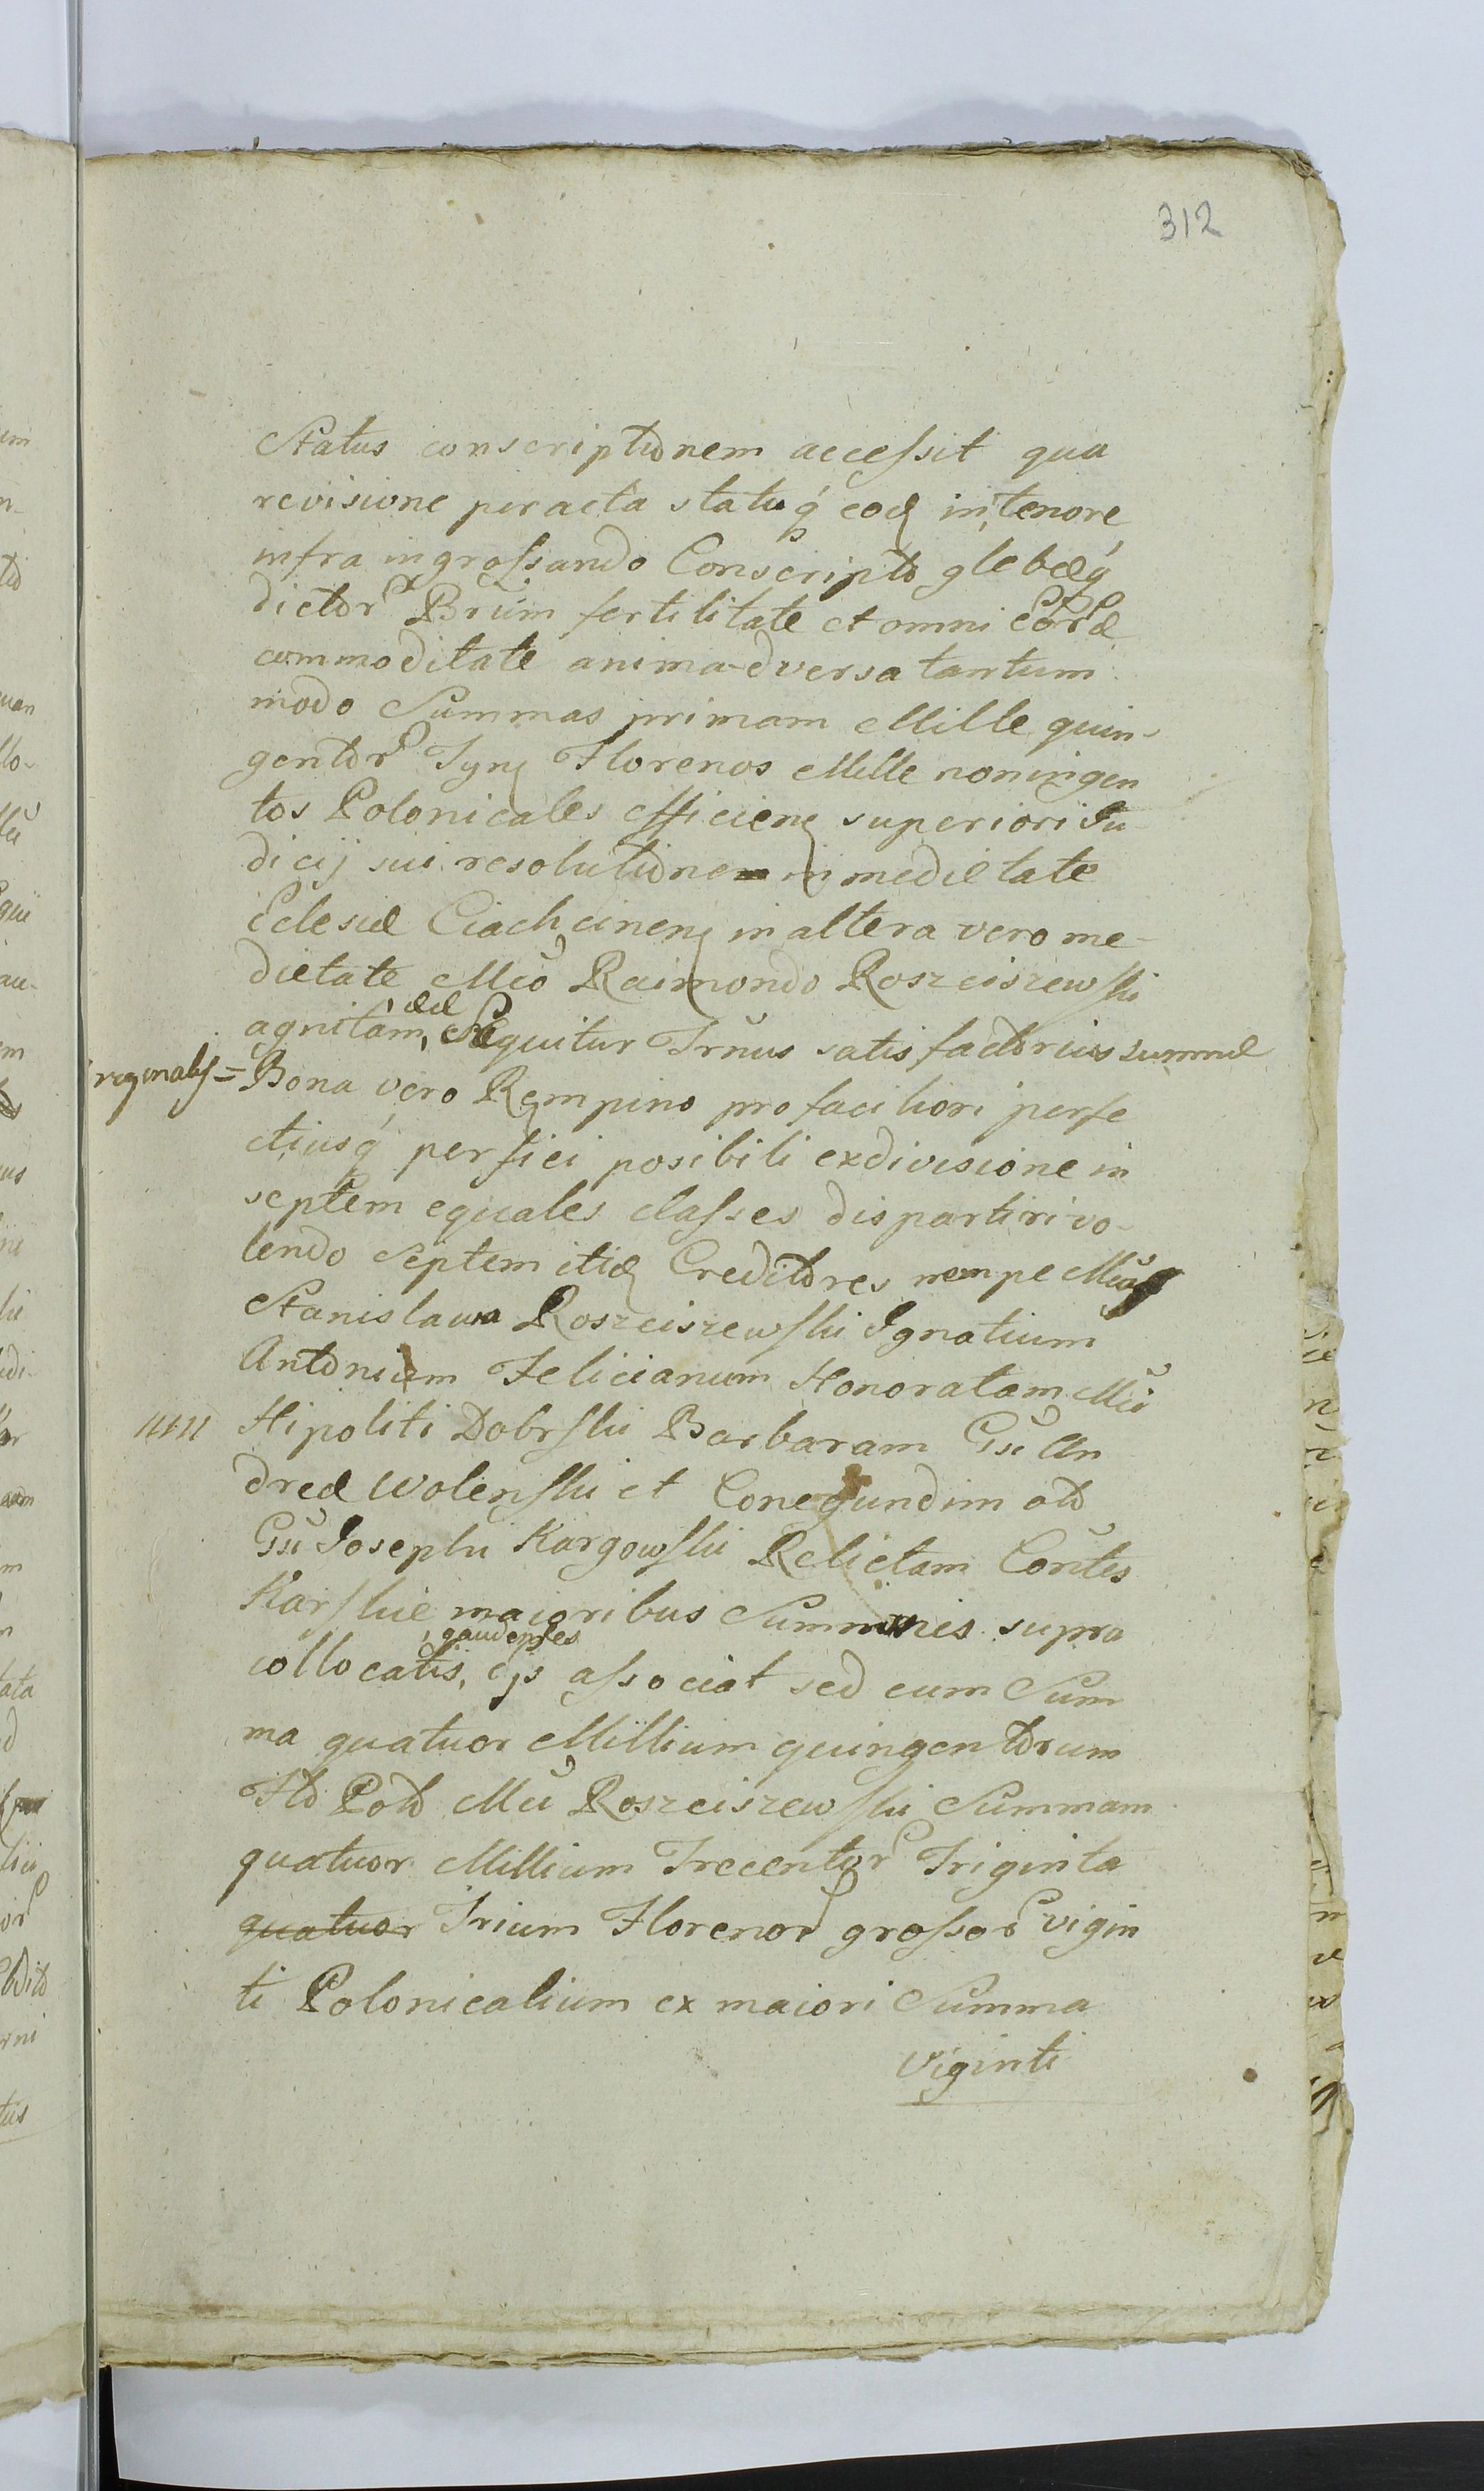 312
Status conscriptionem accessit qua
revisione peracta statuq́ eod in tenore
infra ingrossando Conscripto glebæq́
dictor Brum fertilitate et omni eor̃dæ
commoditate animadversa tantum
modo Summas primam Mille quin-
gentor Tyn Florenos Mille noningen
tos Polonicales efficien superiori Ju-
dicij sui resolutione in medietate
Eclesiæ Ciachcinen in altera vero me-
dietate Mco Raimondo Roszciszewski
agnitam, sequitur Trnus satisfactorius summæ
Bona vero Rempino pro faciliori perfe
ctiusq́ perfici posibili exdivisione in
septem equales classes dispartiri vo-
lendo Septem itid Creditores nempe
Stanislaum Roszciszewski Ignatium
Antonium Felicianum Honoratam Mci
Hipoliti Dobrski Barbaram Gsi An
dreæ Wolenski et Conegundim olo
Gsi Josephi Kargowski Relictam Contes
Karskie maioribus Summis supra
gaudentes
collocatis, ejs associat sed eum Sum
ma quatuor Millium quingentorum
Flo Polo Mci Roszciszewski Summam
quatuor Millium Trecentor Triginta
quatuor Trium Florenor grossor vigin
ti Polonicalium ex maiori Summa
Viginti